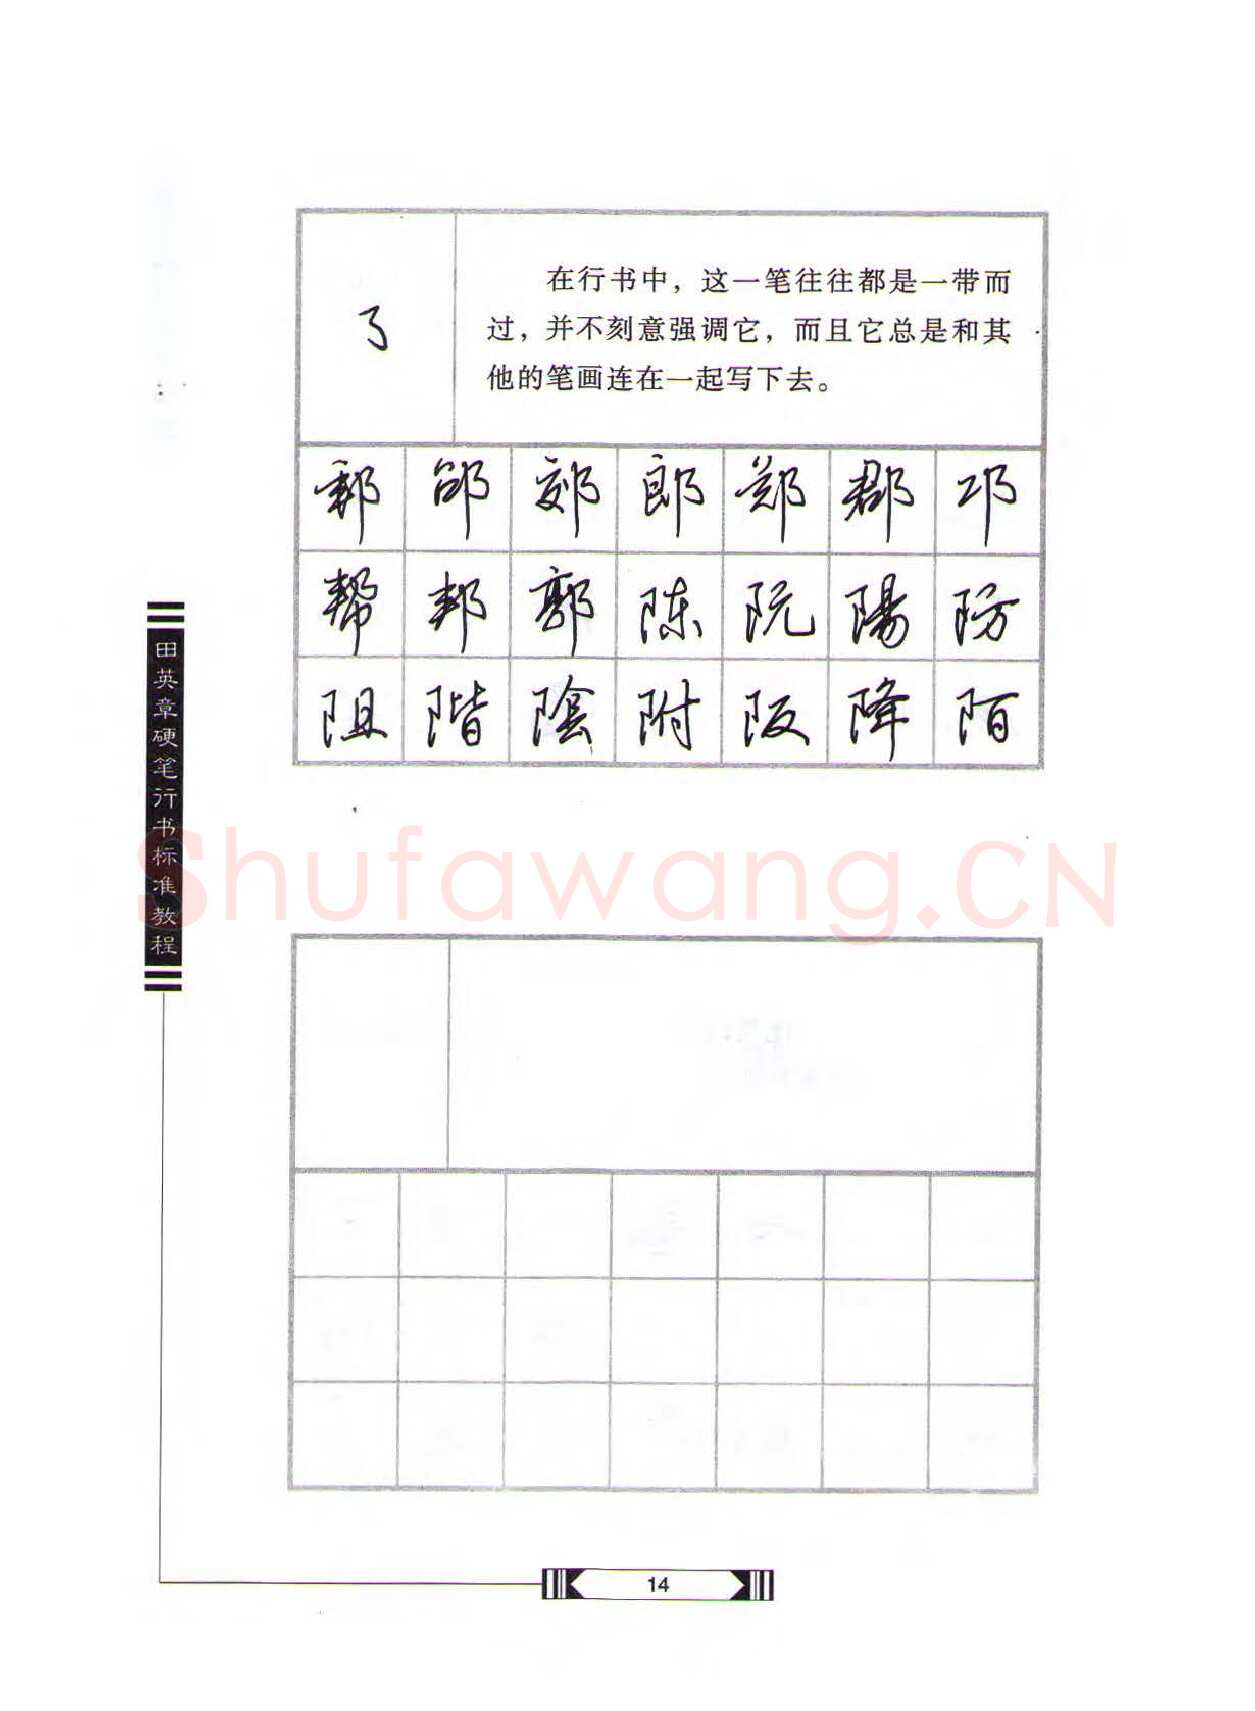 在行书中，这一笔往往都是一带而
过，并不刻意强调它，而且它总是和其
他的笔画连在一起写下去。
郎 郑 郡 邛
帮 邦 郭 陈 阮 陽 防
阻 階 陰 附 阪 降 陌
田英章硬笔行书标准教程
Shufawang.CN
14